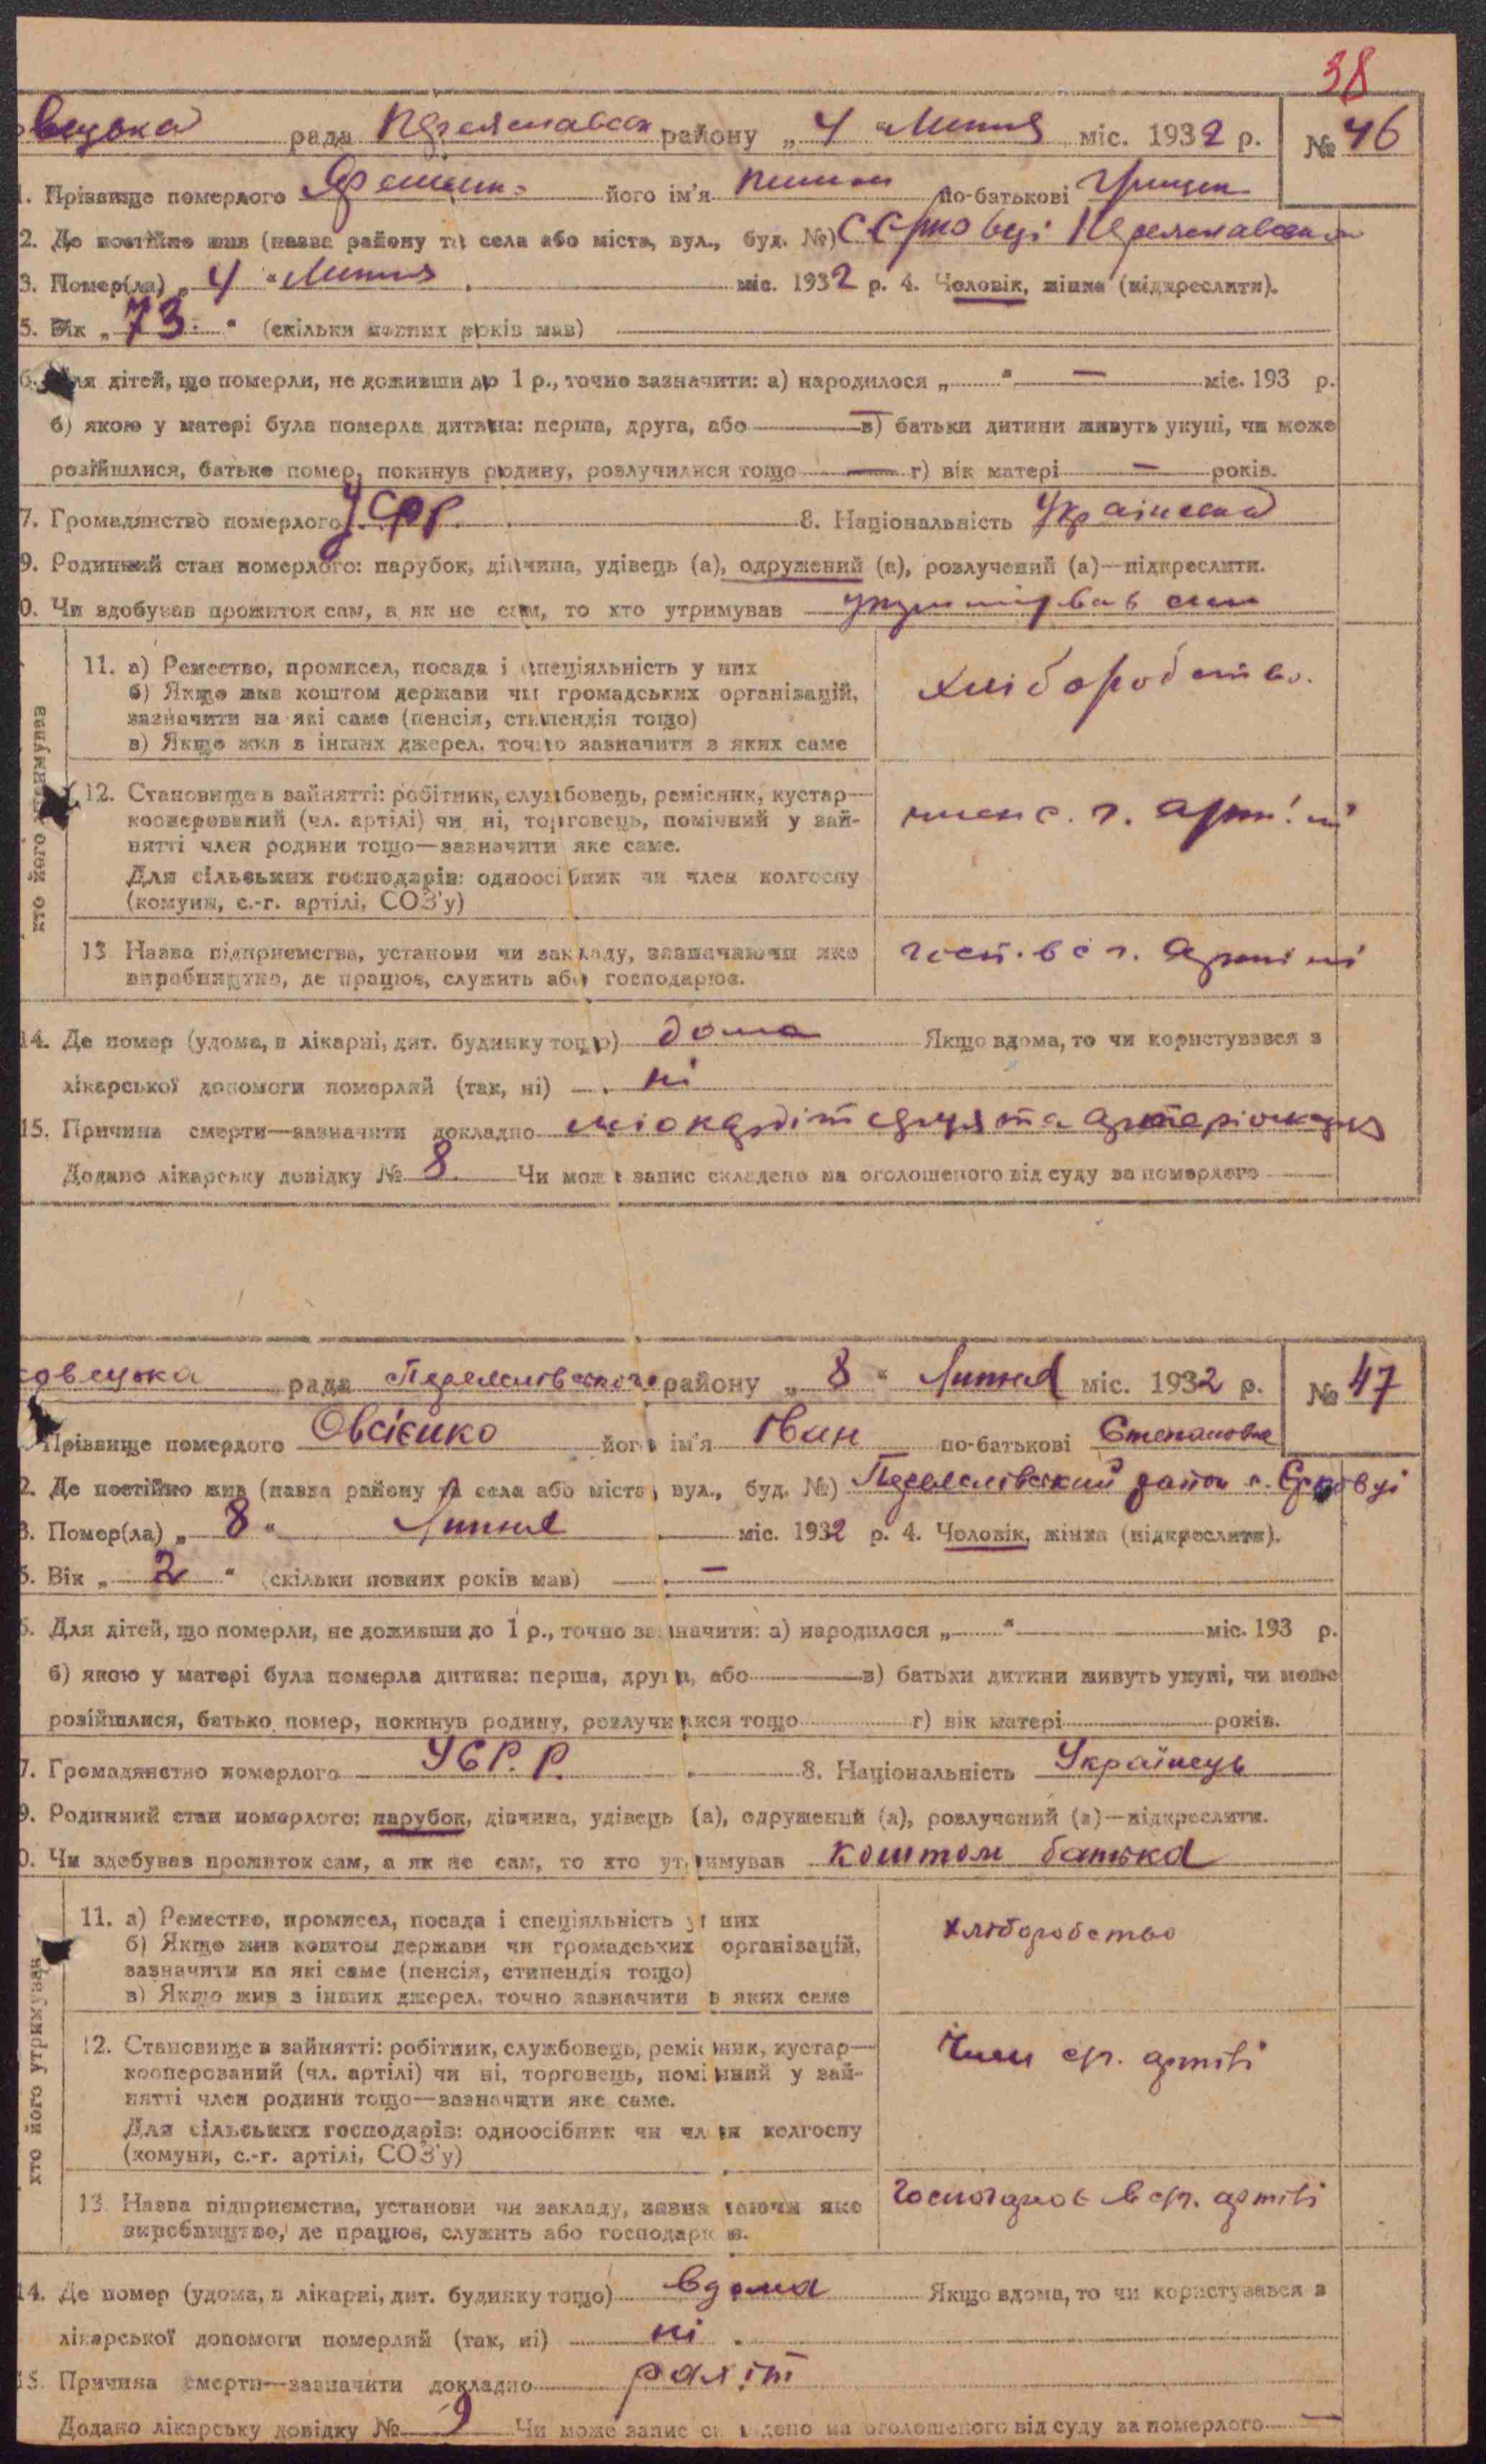 38
вецька рада Переяславськ району „ 4 “ Липня міс. 1932 р. № 46
1. Прізвище померлого його ім'я по-батькові
2. Де постійно жив (назва району та села або міста, вул., буд. №) с Єрковці Переяславськ
3. Помер(ла) „ 4 “ Липня міс. 1932 р. 4. Чоловік, жінка (підкреслити).
5. Вік „ 73 “ (скільки повних років мав)
6. Для дітей, що померли, не доживши до 1 р., точно зазначити: а) народилося „ “ — міс. 193 р.
б) якою у матері була померла дитина: перша, друга, або — в) батьки дитини живуть укупі, чи може
розійшлися, батько помер, покинув родину, розлучилися тощо — г) вік матері — років.
7. Громадянство померлого УСРР. 8. Національність
9. Родинний стан померлого: парубок, дівчина, удівець (а), одружений (а), розлучений (а)—підкреслити.
0. Чи здобував прожиток сам, а як не сам, то хто утримував син
хто його утримував
11. а) Ремество, промисел, посада і спеціяльність у них
б) Якщо жив коштом держави чи громадських організацій,
зазначити на які саме (пенсія, стипендія тощо)
в) Якщо жив з інших джерел, точно зазначити з яких саме
хліборобство.
12. Становище в зайнятті: робітник, службовець, ремісник, кустар—
кооперований (чл. артілі) чи ні, торговець, помічний у зай-
нятті член родини тощо—зазначити яке саме.
Для сільських господарів: одноосібник чи член колгоспу
(комуни, с.-г. артілі, СОЗ'у)
член с. г. артілі
13 Назва підприємства, установи чи закладу, зазначаючи яке
виробництво, де працює, служить або господарює.
госп. в с г. артілі
14. Де помер (удома, в лікарні, дит. будинку тощо) дома Якщо вдома, то чи користувався з
лікарської допомоги померлий (так, ні) ні
15. Причина смерти—зазначити докладно міокардіт серця та
Додано лікарську довідку № 8 Чи може запис складено на оголошеного від суду за померлого
ковецька рада Переяслівського району „ 8 “ Липня міс. 1932 р. № 47
Прізвище померлого Овсієнко його ім'я Іван по-батькові Степанович
2. Де постійно жив (назва району та села або міста, вул., буд. №) Переяслівський район с. Єрковці
3. Помер(ла) „ 8 “ Липня міс. 1932 р. 4. Чоловік, жінка (підкреслити).
5. Вік „ 2 “ (скільки повних років мав) —
6. Для дітей, що померли, не доживши до 1 р., точно зазначити: а) народилося „ “ міс. 193 р.
б) якою у матері була померла дитина: перша, друга, або в) батьки дитини живуть укупі, чи може
розійшлися, батько помер, покинув родину, розлучилися тощо г) вік матері років.
7. Громадянство померлого УСР.Р. 8. Національність Українець
9. Родинний стан померлого: парубок, дівчина, удівець (а), одружений (а), розлучений (а)—підкреслити.
0. Чи здобував прожиток сам, а як не сам, то хто утримував коштом батька
хто його утримував
11. а) Ремество, промисел, посада і спеціяльність у них
б) Якщо жив коштом держави чи громадських організацій,
зазначити на які саме (пенсія, стипендія тощо)
в) Якщо жив з інших джерел, точно зазначити з яких саме
хліборобство
12. Становище в зайнятті: робітник, службовець, ремісник, кустар—
кооперований (чл. артілі) чи ні, торговець, помічний у зай-
нятті член родини тощо—зазначити яке саме.
Для сільських господарів: одноосібник чи член колгоспу
(комуни, с.-г. артілі, СОЗ'у)
Член с/г. артілі
13 Назва підприємства, установи чи закладу, зазначаючи яке
виробництво, де працює, служить або господарює.
Господарює в с/г. артілі
14. Де помер (удома, в лікарні, дит. будинку тощо) вдома Якщо вдома, то чи користувався з
лікарської допомоги померлий (так, ні) ні
15. Причина смерти—зазначити докладно рахіт
Додано лікарську довідку № 9 Чи може запис складено на оголошеного від суду за померлого —